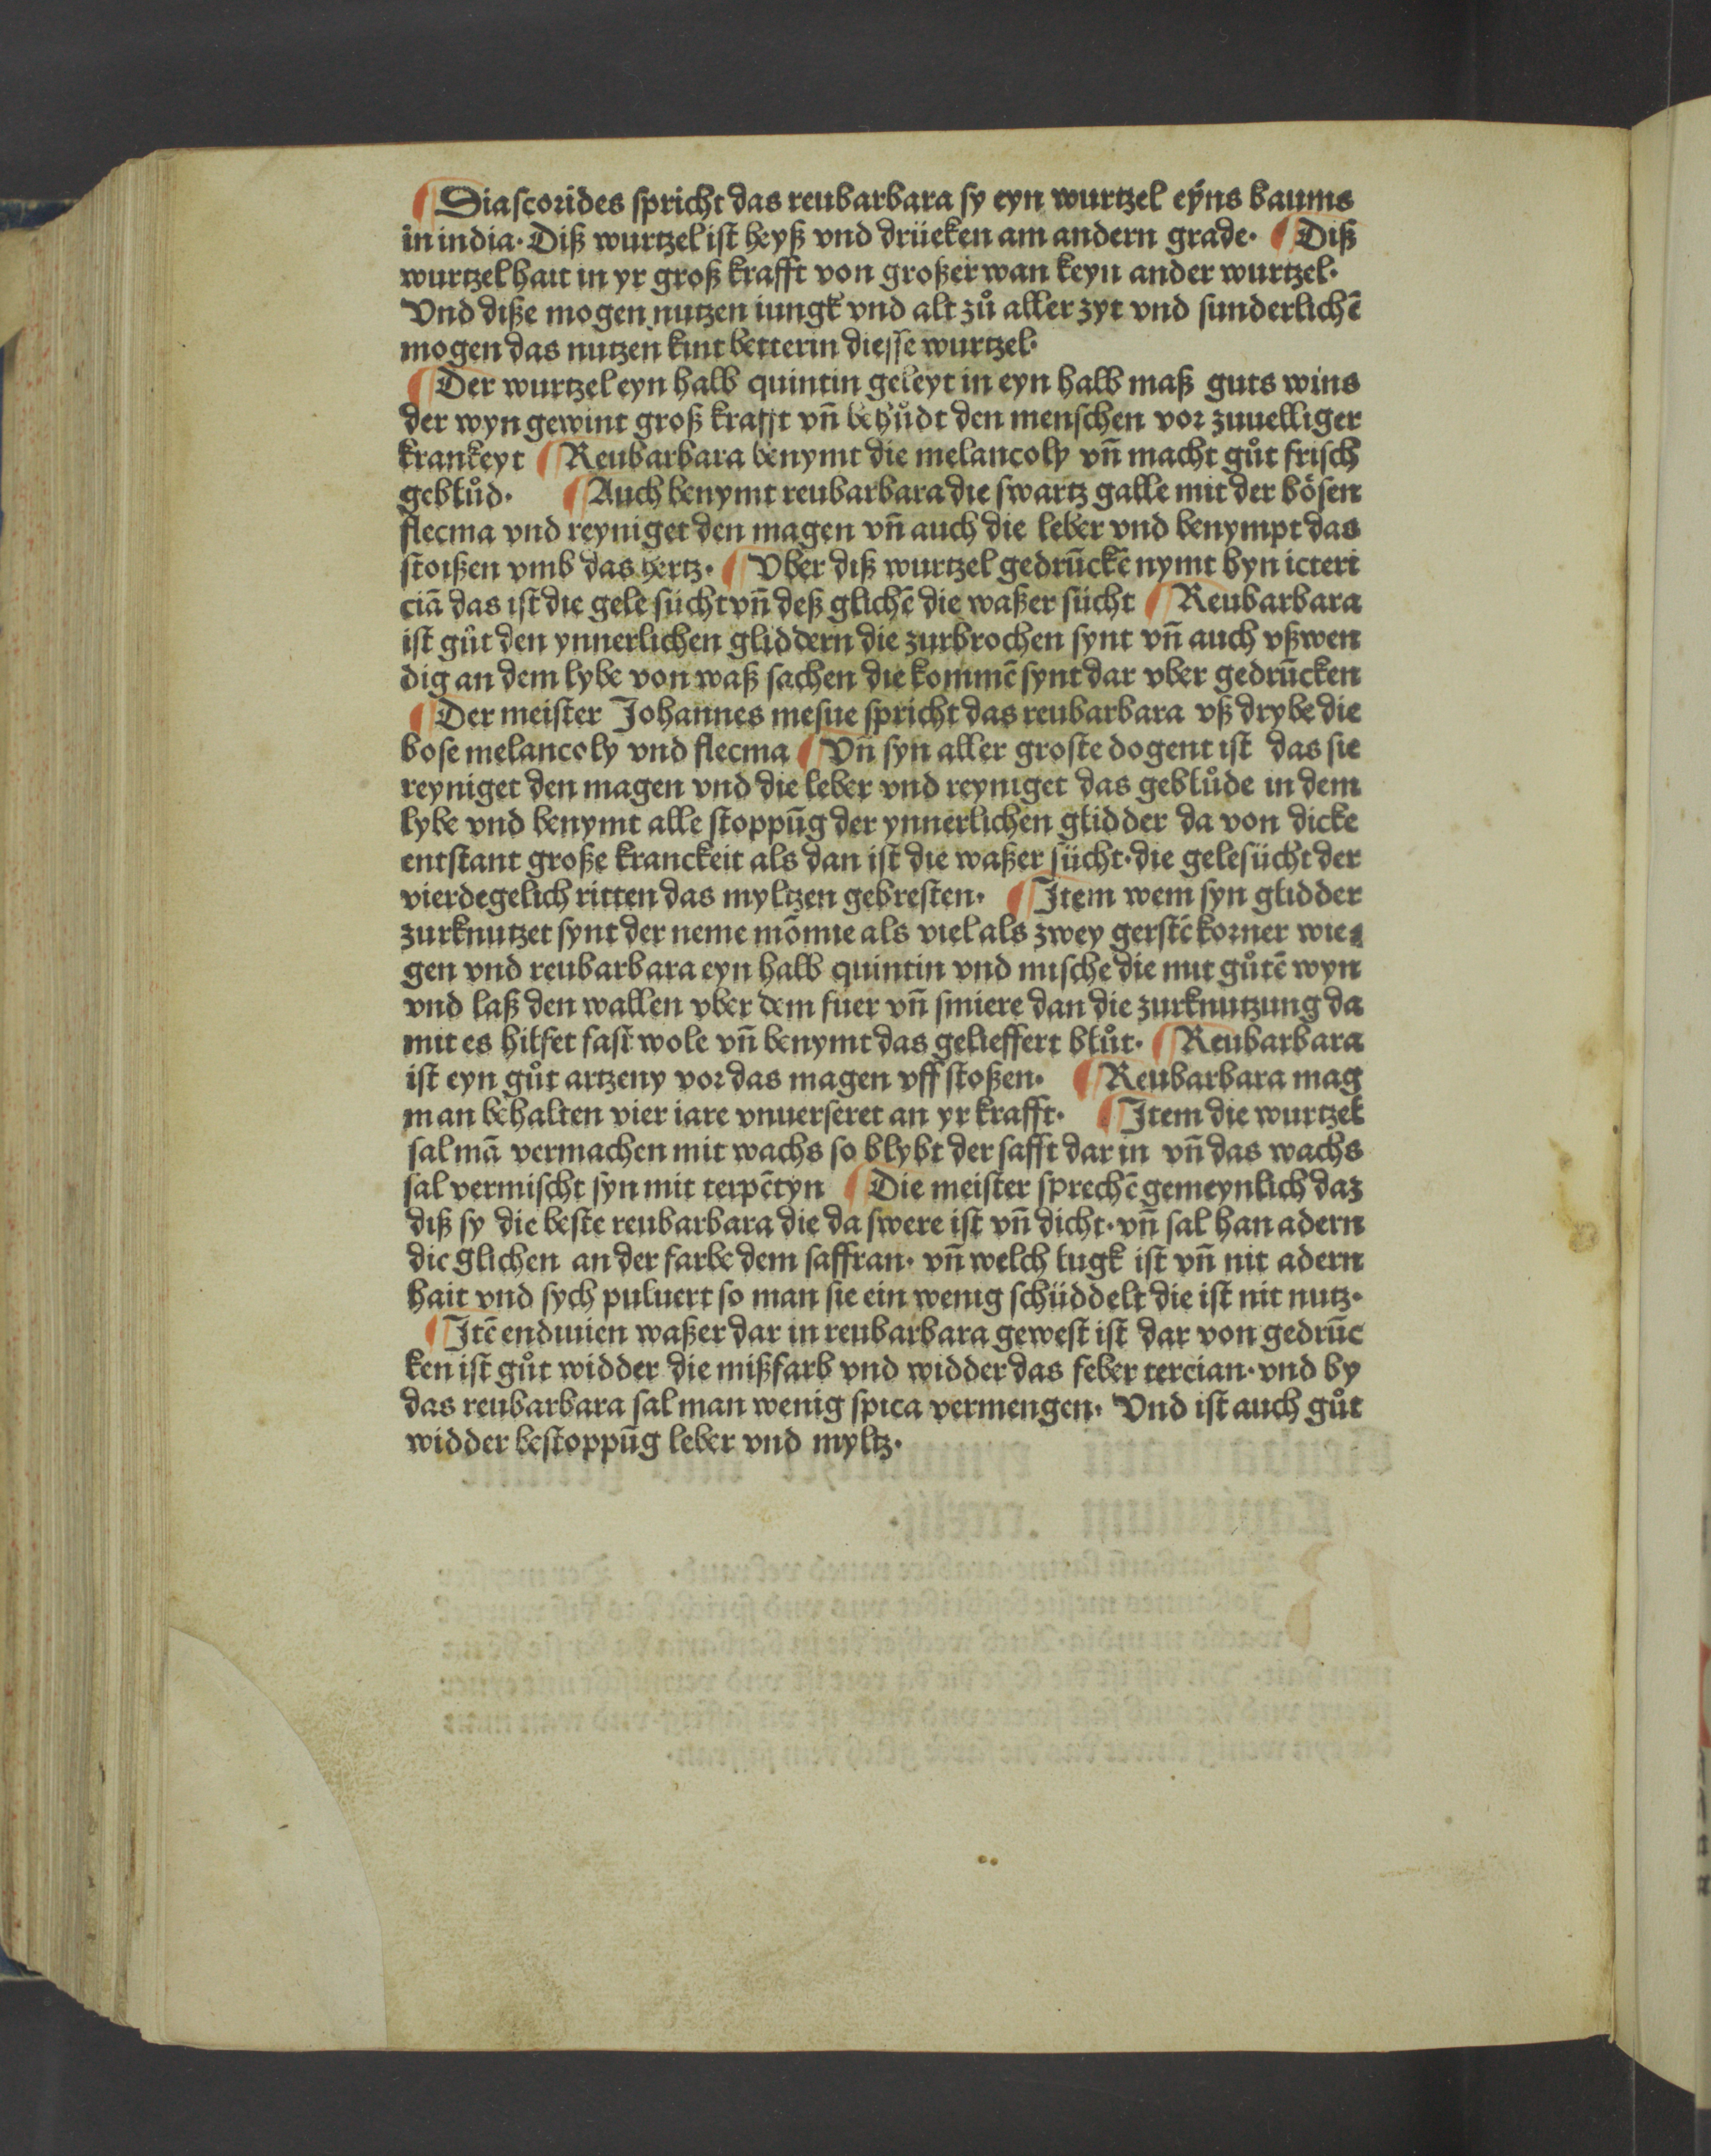 Diascorides spricht das reubarbara sy eyn wurtzel eyns baums
in india· Diß wurtzel ist heyß vnd drücken am andern grade· Diß
wurtzel hait in yr groß krafft von großer wan keyn ander wurtzel·
Vnd diße mogen nutzen iungk vnd alt zů aller zyt vnd sunderlichē
mogen das nutzen kint betterin diesse wurtzel·
Der wurtzel eyn halb quintin geleyt in eyn halb maß guts wins
der wyn gewint groß krafft vñ behůdt den menschen vor zuuelliger
krankeyt Reubarbara benymt die melancoly vñ macht gůt frisch
geblůd· Auch benymt reubarbara die swartz galle mit der bösen
flecma vnd reyniget den magen vñ auch die leber vnd benympt das
stoißen vmb das hertz· Vber diß wurtzel gedrūckē nymt hyn icteri
ciā das ist die gele sücht vñ deß glichē die waßer sücht Reubarbara
ist gůt den ynnerlichen gliddern die zurbrochen synt vñ auch vßwen
dig an dem lybe von waß sachen die kommē synt dar vber gedrūcken
Der meister Johannes mesue spricht das reubarbara vß drybe die
bose melancoly vnd flecma Vñ syn aller groste dogent ist das sie
reyniget den magen vnd die leber vnd reyniget das geblůde in dem
lybe vnd benymt alle stoppūg der ynnerlichen glidder da von dicke
entstant große kranckeit als dan ist die waßer sücht· die gelesücht der
vierdegelich ritten das myltzen gebresten· Item wem syn glidder
zurknutzet synt der neme mōmie als viel als zwey gerstē korner wie
gen vnd reubarbara eyn halb quintin vnd mische die mit gůtē wyn
vnd laß den wallen vber dem fuer vñ smiere dan die zurknutzung da
mit es hilfet fast wole vñ benymt das gelieffert blůt· Reubarbara
ist eyn gůt artzeny vor das magen vff stoßen· Reubarbara mag
man behalten vier iare vnuerseret an yr krafft· Item die wurtzel
sal mā vermachen mit wachs so blybt der safft dar in vñ das wachs
sal vermischt syn mit terpētyn Die meister sprechē gemeynlich daz
diß sy die beste reubarbara die da swere ist vñ dicht· vñ sal han adern
die glichen an der farbe dem saffran· vñ welch lugk ist vñ nit adern
hait vnd sych puluert so man sie ein wenig schüddelt die ist nit nutz·
Itē endiuien waßer dar in reubarbara gewest ist dar von gedrūc
ken ist gůt widder die mißfarb vnd widder das feber tercian· vnd by
das reubarbara sal man wenig spica vermengen· Vnd ist auch gůt
widder bestoppūg leber vnd myltz·